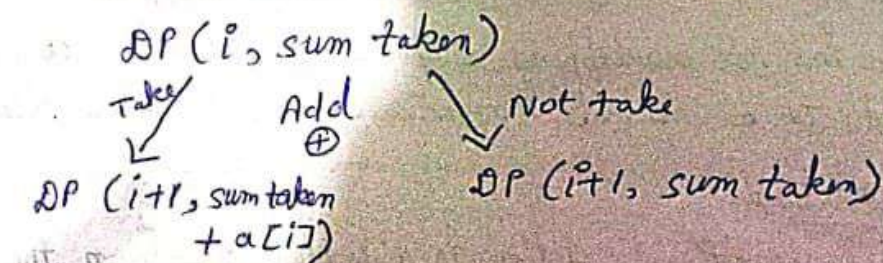 DP (i, sum taken)
Take Add Not take
⊕
DP (i+1, sum taken DP (i+1, sum taken)
+ a[i])